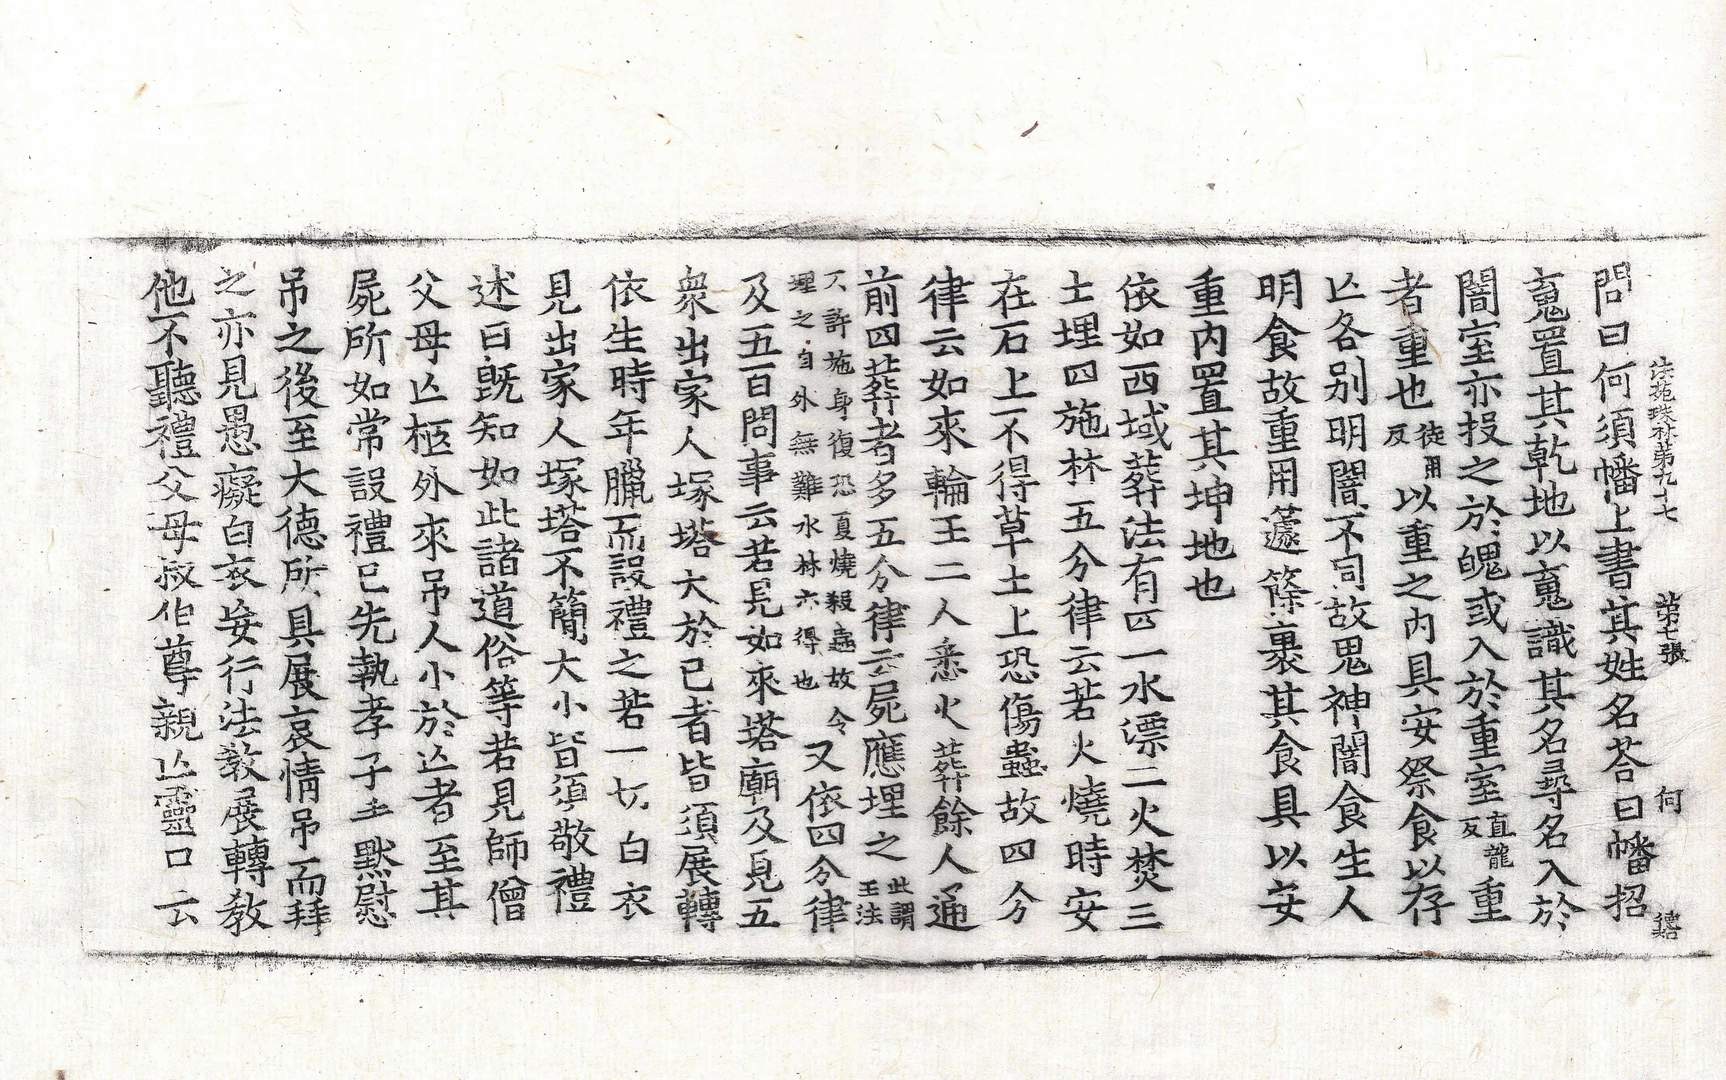 法苑珠林第九十七 第七張 何
問曰何須幡上書其姓名荅曰幡招
䰟置其乾地以䰟識其名尋名入於
闇室亦投之於魄或入於重室直龍反重
者重也徒用反以重之內具安祭食以存
亾各别明闇不同故鬼神闇食生人
明食故重用籧篨裹其食具以安
重內置其坤地也
依如西域葬法有四一水漂二火焚三
土埋四施林五分律云若火燒時安
在石上不得草土上恐傷蟲故四分
律云如來輪王二人悉火葬餘人通
前四葬者多五分律云屍應埋之此謂王法
不許施身復恐夏燒殺蟲故令埋之自外無難水林六得也又依四分律
及五百問事云若見如來塔廟及見五
衆出家人塚塔大於己者皆須展轉
依生時年臘而設禮之若一切白衣
見出家人塚塔不簡大小皆須敬禮
述曰旣知如此諸道俗等若見師僧
父母亾柩外來吊人小於亾者至其
屍所如常設禮已先執孝子手默慰
吊之後至大德所具展哀情吊而拜
之亦見愚癡白衣妄行法教展轉教
他不聽禮父母叔伯尊親亾靈口云